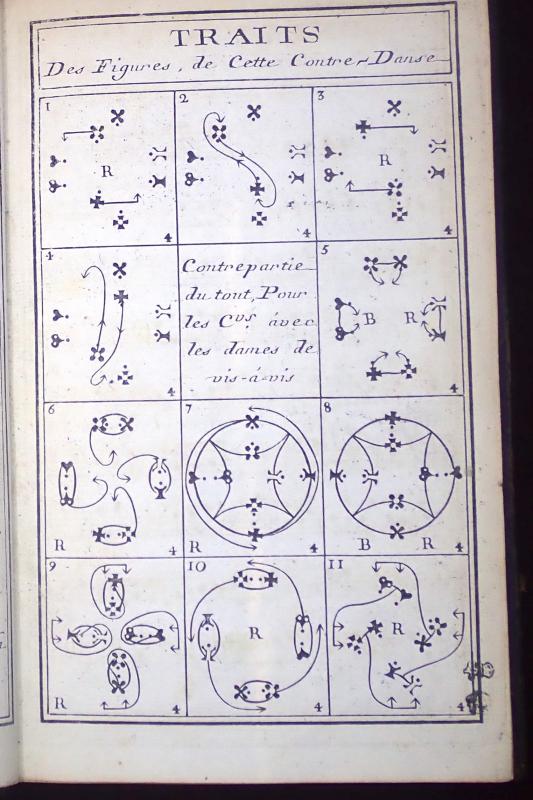 TRAITS
Des Figures, de Cette Contre-Danse
1
R
4
2
4
3
R
4
4
4
Contrepartie
du tout, Pour
les Cvs. ávec
les dames de
vis-á-vis
5
B R
4
6
R 4
7
R 4
8
B R 4
9
R 4
10
R
4
11
R
4